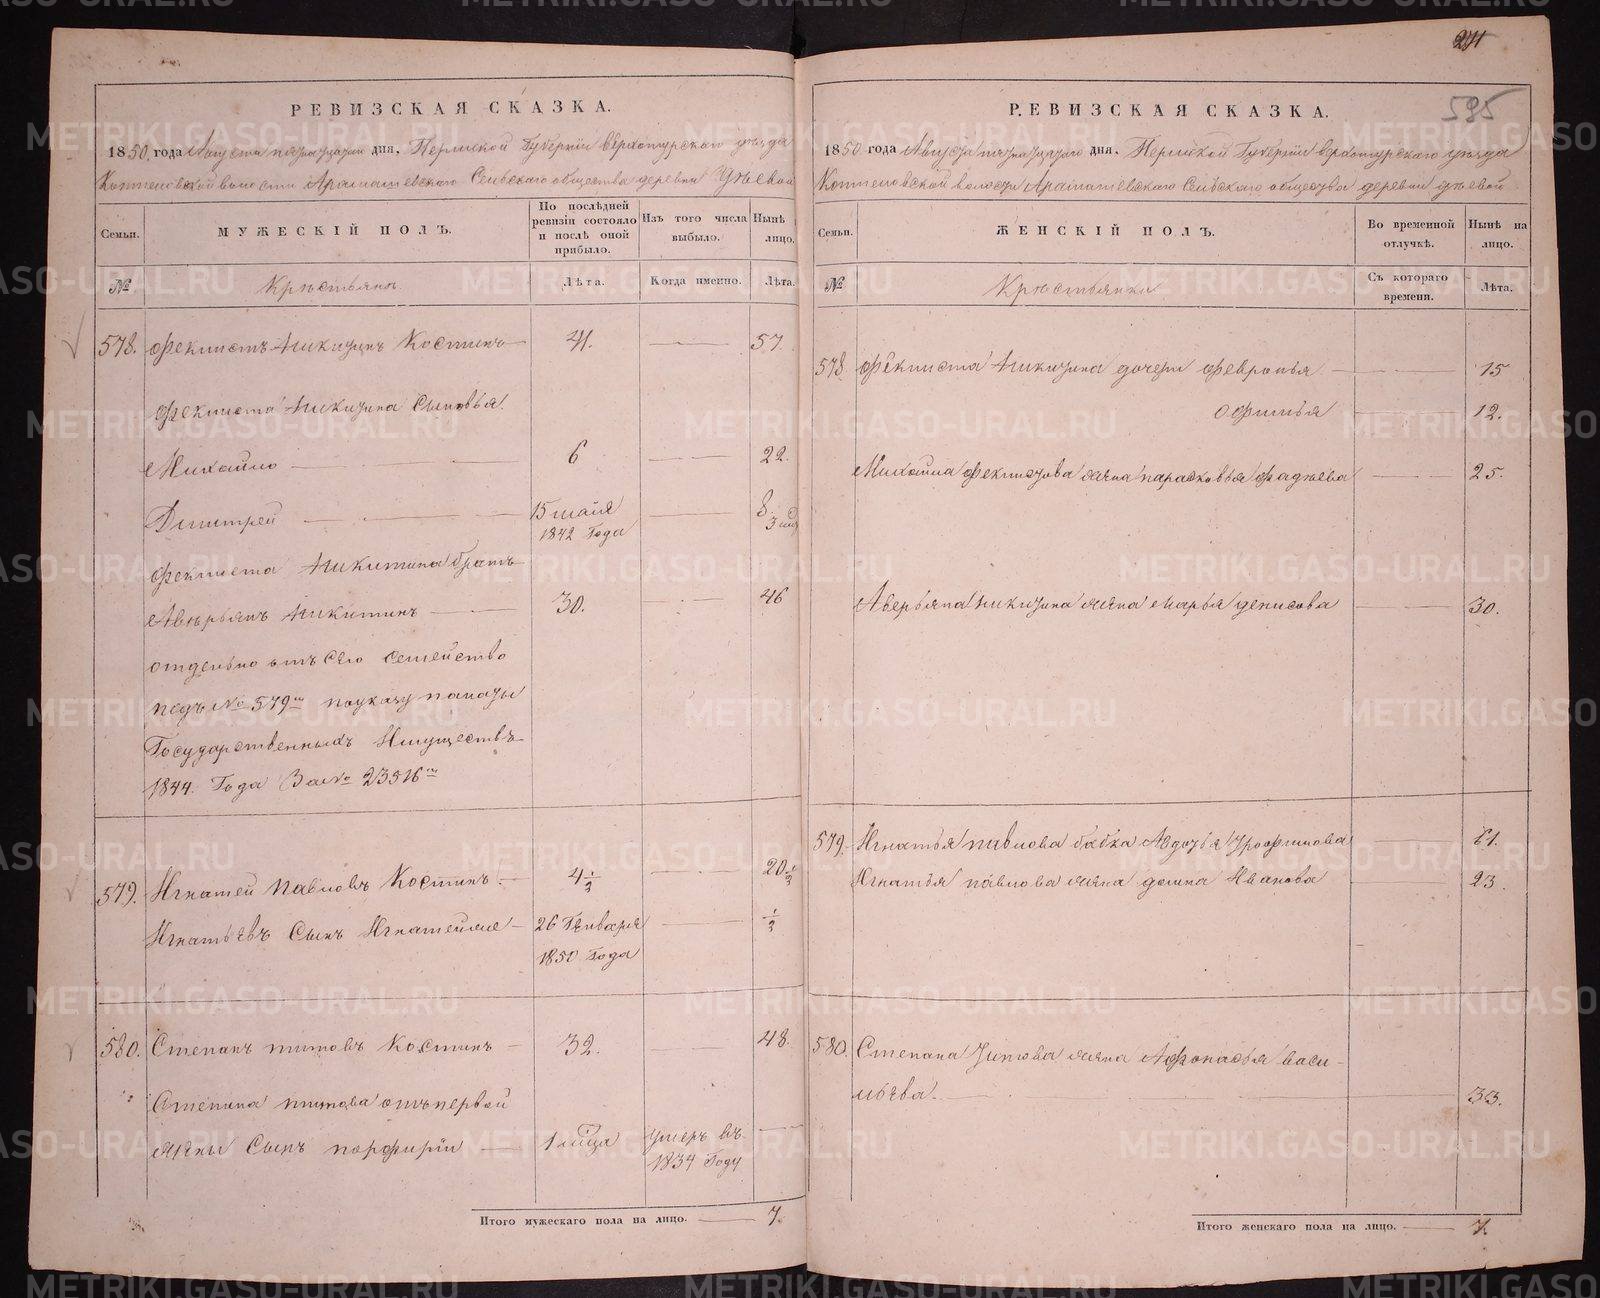 241
595
РЕВИЗСКАЯ СКАЗКА.
1850 года Августа пятнатцатаго дня, Пермской Губернiи верхотурскаго уѣзда
Коптеловской волости Арамашевскаго Сельскаго общества деревни
Семьи.
МУЖЕСКІЙ ПОЛЪ.
По послѣдней ревизіи состояло и послѣ оной прибыло.
Изъ того числа выбыло.
Нынѣ на лицо.
№
Крестьянъ
Лѣта.
Когда именно.
Лѣта.
578. Фектистъ Никитинъ Костинъ — 41. — 57.
Фектиста Никитина Сыновья.
Михайло — 6 — 22.
Дмитрей — 15 майя 1842 Года — 8. 3 мѣс
Фектиста Никитина братъ
Аверьянъ Никитинъ — 30. — 46
отдельно отъ сего семейство
подъ № 579м по указу палаты
Государственныхъ Имуществъ
1844. Года За № 23516м
579. Игнатей Павловъ Костинъ. — 4½ — 20½
Игнатьевъ Сынъ Игнатей же — 26 Генваря 1850 Года — ½
580. Степанъ титовъ Костинъ — 32. — 48.
Степана титова отъ первой
жены Сынъ порфирiи — 1 мѣца умеръ въ 1834 Году —
Итого мужескаго пола на лицо. — 7.
РЕВИЗСКАЯ СКАЗКА.
1850 года Августа пятнатцатаго дня. Пермской Губернiи верхотурскаго уѣзда
Коптеловской волости Арамашевскаго Сельскаго общества деревни
Семьи.
ЖЕНСКІЙ ПОЛЪ.
Во временной отлучкѣ.
Нынѣ на лицо.
№
Крестьянки
Съ котораго времени.
Лѣта.
578 Фектиста Никитина дочери Февронья — 15
Офимья — 12.
Михайла Фектистова жена парасковья фадѣева — 25.
Аверьяна Никитина жена Марья денисова — 30.
579. Игнатья павлова бабка Авдотья трофимова — 61.
Игнатья павлова жена домна Иванова — 23.
580. Степана Титова жена Афонасья васи-
льева. — 33.
Итого женскаго пола на лицо. — 7.
METRIKI.GASO-URAL.RU